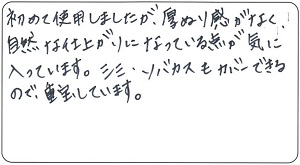 初めて使用しましたが、厚ぬり感がなく、
自然な仕上がりになっている点が気に
入っています。シミ・ソバカスもカバーできる
ので、重宝しています。